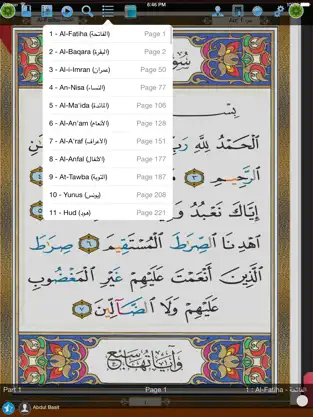 6:46 PM
Al-Fatiha
Juz' 1
1 - Al-Fatiha (الفاتحة) Page 1
2 - Al-Baqara (البقرة) Page 2
3 - Al-i-Imran (عمران) Page 50
4 - An-Nisa (النساء) Page 77
5 - Al-Ma'ida (المائدة) Page 106
6 - Al-An'am (الأنعام) Page 128
7 - Al-A'raf (الأعراف) Page 151
8 - Al-Anfal (الأنفال) Page 177
9 - At-Tawba (التوبة) Page 187
10 - Yunus (يونس) Page 208
11 - Hud (هود) Page 221
سُورَةُ
بِسْمِ
الْحَمْدُ لِلَّهِ رَبِّ
الرَّحِيمِ ٣
إِيَّاكَ نَعْبُدُ وَإِيَّاكَ
اهْدِنَا الصِّرَاطَ الْمُسْتَقِيمَ ٦ صِرَاطَ
الَّذِينَ أَنْعَمْتَ عَلَيْهِمْ غَيْرِ الْمَغْضُوبِ
عَلَيْهِمْ وَلَا الضَّالِّينَ ٧
وَآيَاتُهَا سَبْعٌ
Part 1 Page 1 1 : Al-Fatiha - الفاتحة
1
Abdul Basit